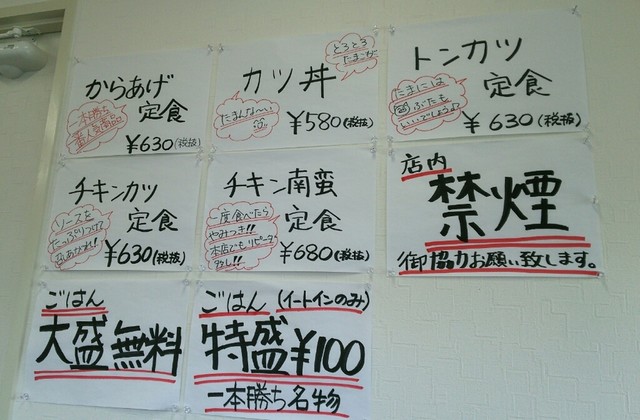 からあげ
定食
一番人気商品
¥630(税抜)
とろとろ
たまごが
カツ丼
たまんな〜い
¥580(税抜)
トンカツ
定食
たまには
豚ぶたも
いいでしょうよ
¥630(税抜)
チキンカツ
定食
ソースを
たっぷりつけて
¥630(税抜)
チキン南蛮
定食
二度食べたら
やみつき!!
本店でもリピーター
多し!!
¥680(税抜)
店内
禁煙
御協力お願い致します。
ごはん
大盛無料
ごはん(イートインのみ)
特盛¥100
一本勝ち名物